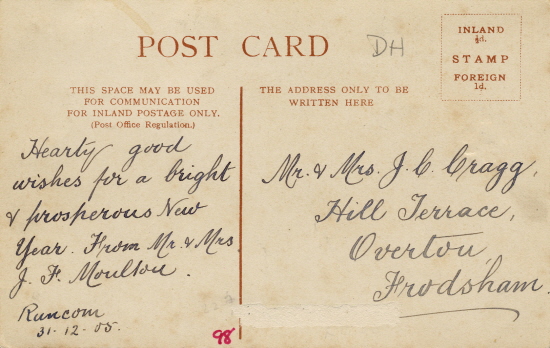 POST CARD
DH
INLAND
½d.
STAMP
FOREIGN
1d.
THIS SPACE MAY BE USED
FOR COMMUNICATION
FOR INLAND POSTAGE ONLY.
(Post Office Regulation.)
THE ADDRESS ONLY TO BE
WRITTEN HERE
Hearty good
wishes for a bright
& prosperous New
Year. From Mr. & Mrs.
J. F. Moulton.
Runcorn
31-12-05.
Mr. & Mrs. J. C. Cragg,
Hill Terrace,
Overton,
Frodsham.
98